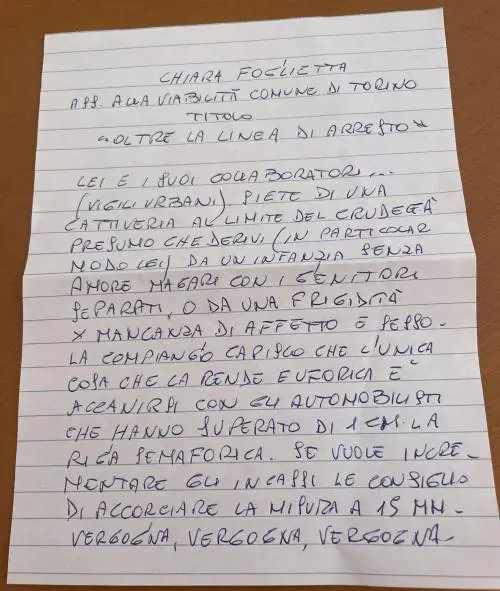 CHIARA FOGLIETTA
ASS. ALLA VIABILITÀ COMUNE DI TORINO
TITOLO
"OLTRE LA LINEA DI ARRESTO"
LEI E I SUOI COLLABORATORI...
(VIGILI URBANI) SIETE DI UNA
CATTIVERIA AL LIMITE DEL CRUDELTÀ
PRESUMO CHE DERIVI (IN PARTICOLAR
MODO LEI) DA UN INFANZIA SENZA
AMORE MAGARI CON I GENITORI
SEPARATI, O DA UNA FRIGIDITÀ
X MANCANZA DI AFFETTO E SESSO.
LA COMPIANGO CAPISCO CHE L'UNICA
COSA CHE LA RENDE EUFORICA È
ACCANIRSI CON GLI AUTOMOBILISTI
CHE HANNO SUPERATO DI 1 CM. LA
RIGA SEMAFORICA. SE VUOLE INCRE-
MENTARE GLI INCASSI LE CONSIGLIO
DI ACCORCIARE LA MISURA A 15 MN.
VERGOGNA, VERGOGNA, VERGOGNA